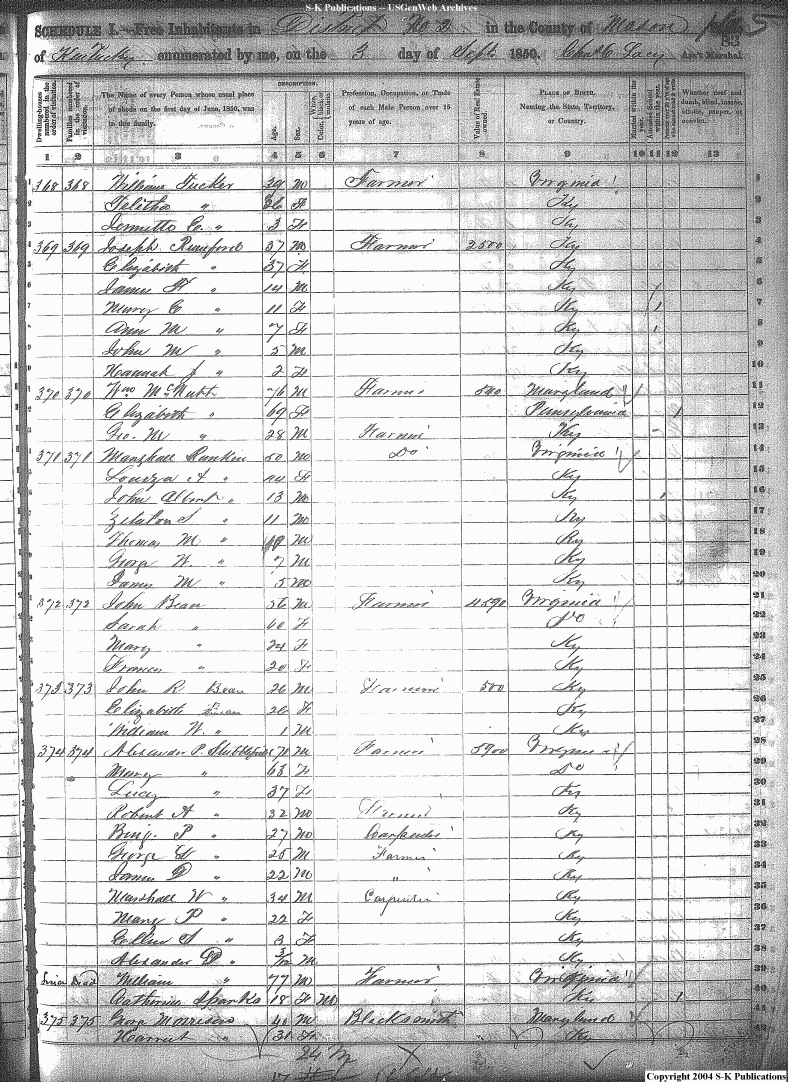 S-K Publications -- USGenWeb Archives
SCHEDULE I.—Free Inhabitants in District No 2 in the County of Mason
of Kentucky enumerated by me, on the 3 day of Sept 1850. Ass't Marshal.
83
Dwelling-houses numbered in the order of visitation.
Families numbered in the order of visitation.
The Name of every Person whose usual place of abode on the first day of June, 1850, was in this family.
DESCRIPTION.
Age.
Sex.
Profession, Occupation, or Trade of each Male Person over 15 years of age.
Value of Real Estate owned.
PLACE OF BIRTH. Naming the State, Territory, or Country.
Married within the year.
Whether deaf and dumb, blind, insane, idiotic, pauper, or convict.
1 2 3 4 5 6 7 8 9 10 11 12 13
368 368 William Tucker 39 M Farmer Virginia
Telitha " 36 F Ky
C. " 3 F Ky
369 369 Joseph Rumford 37 M Farmer 2500 Ky
Elizabeth " 37 F Ky
James H " 14 M Ky
Mary C " 11 F Ky
Ann M " 7 F Ky
John M " 5 M Ky
Hannah J " 2 F Ky
370 370 Wm McNutt 76 M Farmer 500 Maryland
Elizabeth " 69 F Pennsylvania
Geo. M " 28 M Farmer Ky
371 371 Marshall Rankin 50 M Do Virginia
Louiza A " 44 F Ky
John Albert " 13 M Ky
S " 11 M Ky
Thomas M " M Ky
George W. " 7 M Ky
James M " 5 M Ky
372 372 John Bean 56 M Farmer 4590 Virginia
Sarah " 60 F Do
Mary " 24 F Ky
Frances " 20 F Ky
373 373 John R. Bean 26 M Farmer 500 Ky
Elizabeth Bean 26 F Ky
William W. " 1 M Ky
374 374 Alexander P. Stubblefield 70 M Farmer 5900 Virginia
Mary " 63 F Do
Lucy " 37 F Ky
Robert A " 32 M Farmer Ky
Benj. P " 27 M Carpenter Ky
George W " 25 M Farmer Ky
James D " 22 M " Ky
Marshall W " 34 M Carpenter Ky
Mary P " 22 F Ky
S " 3 F Ky
Alexander D " 3/12 M Ky
Dead William " 77 M Farmer Virginia
Catherine Sparks 18 F M Ky
375 375 George Morrison 40 M Blacksmith Maryland
Harriet " 31 F Ky
Copyright 2004 S-K Publications